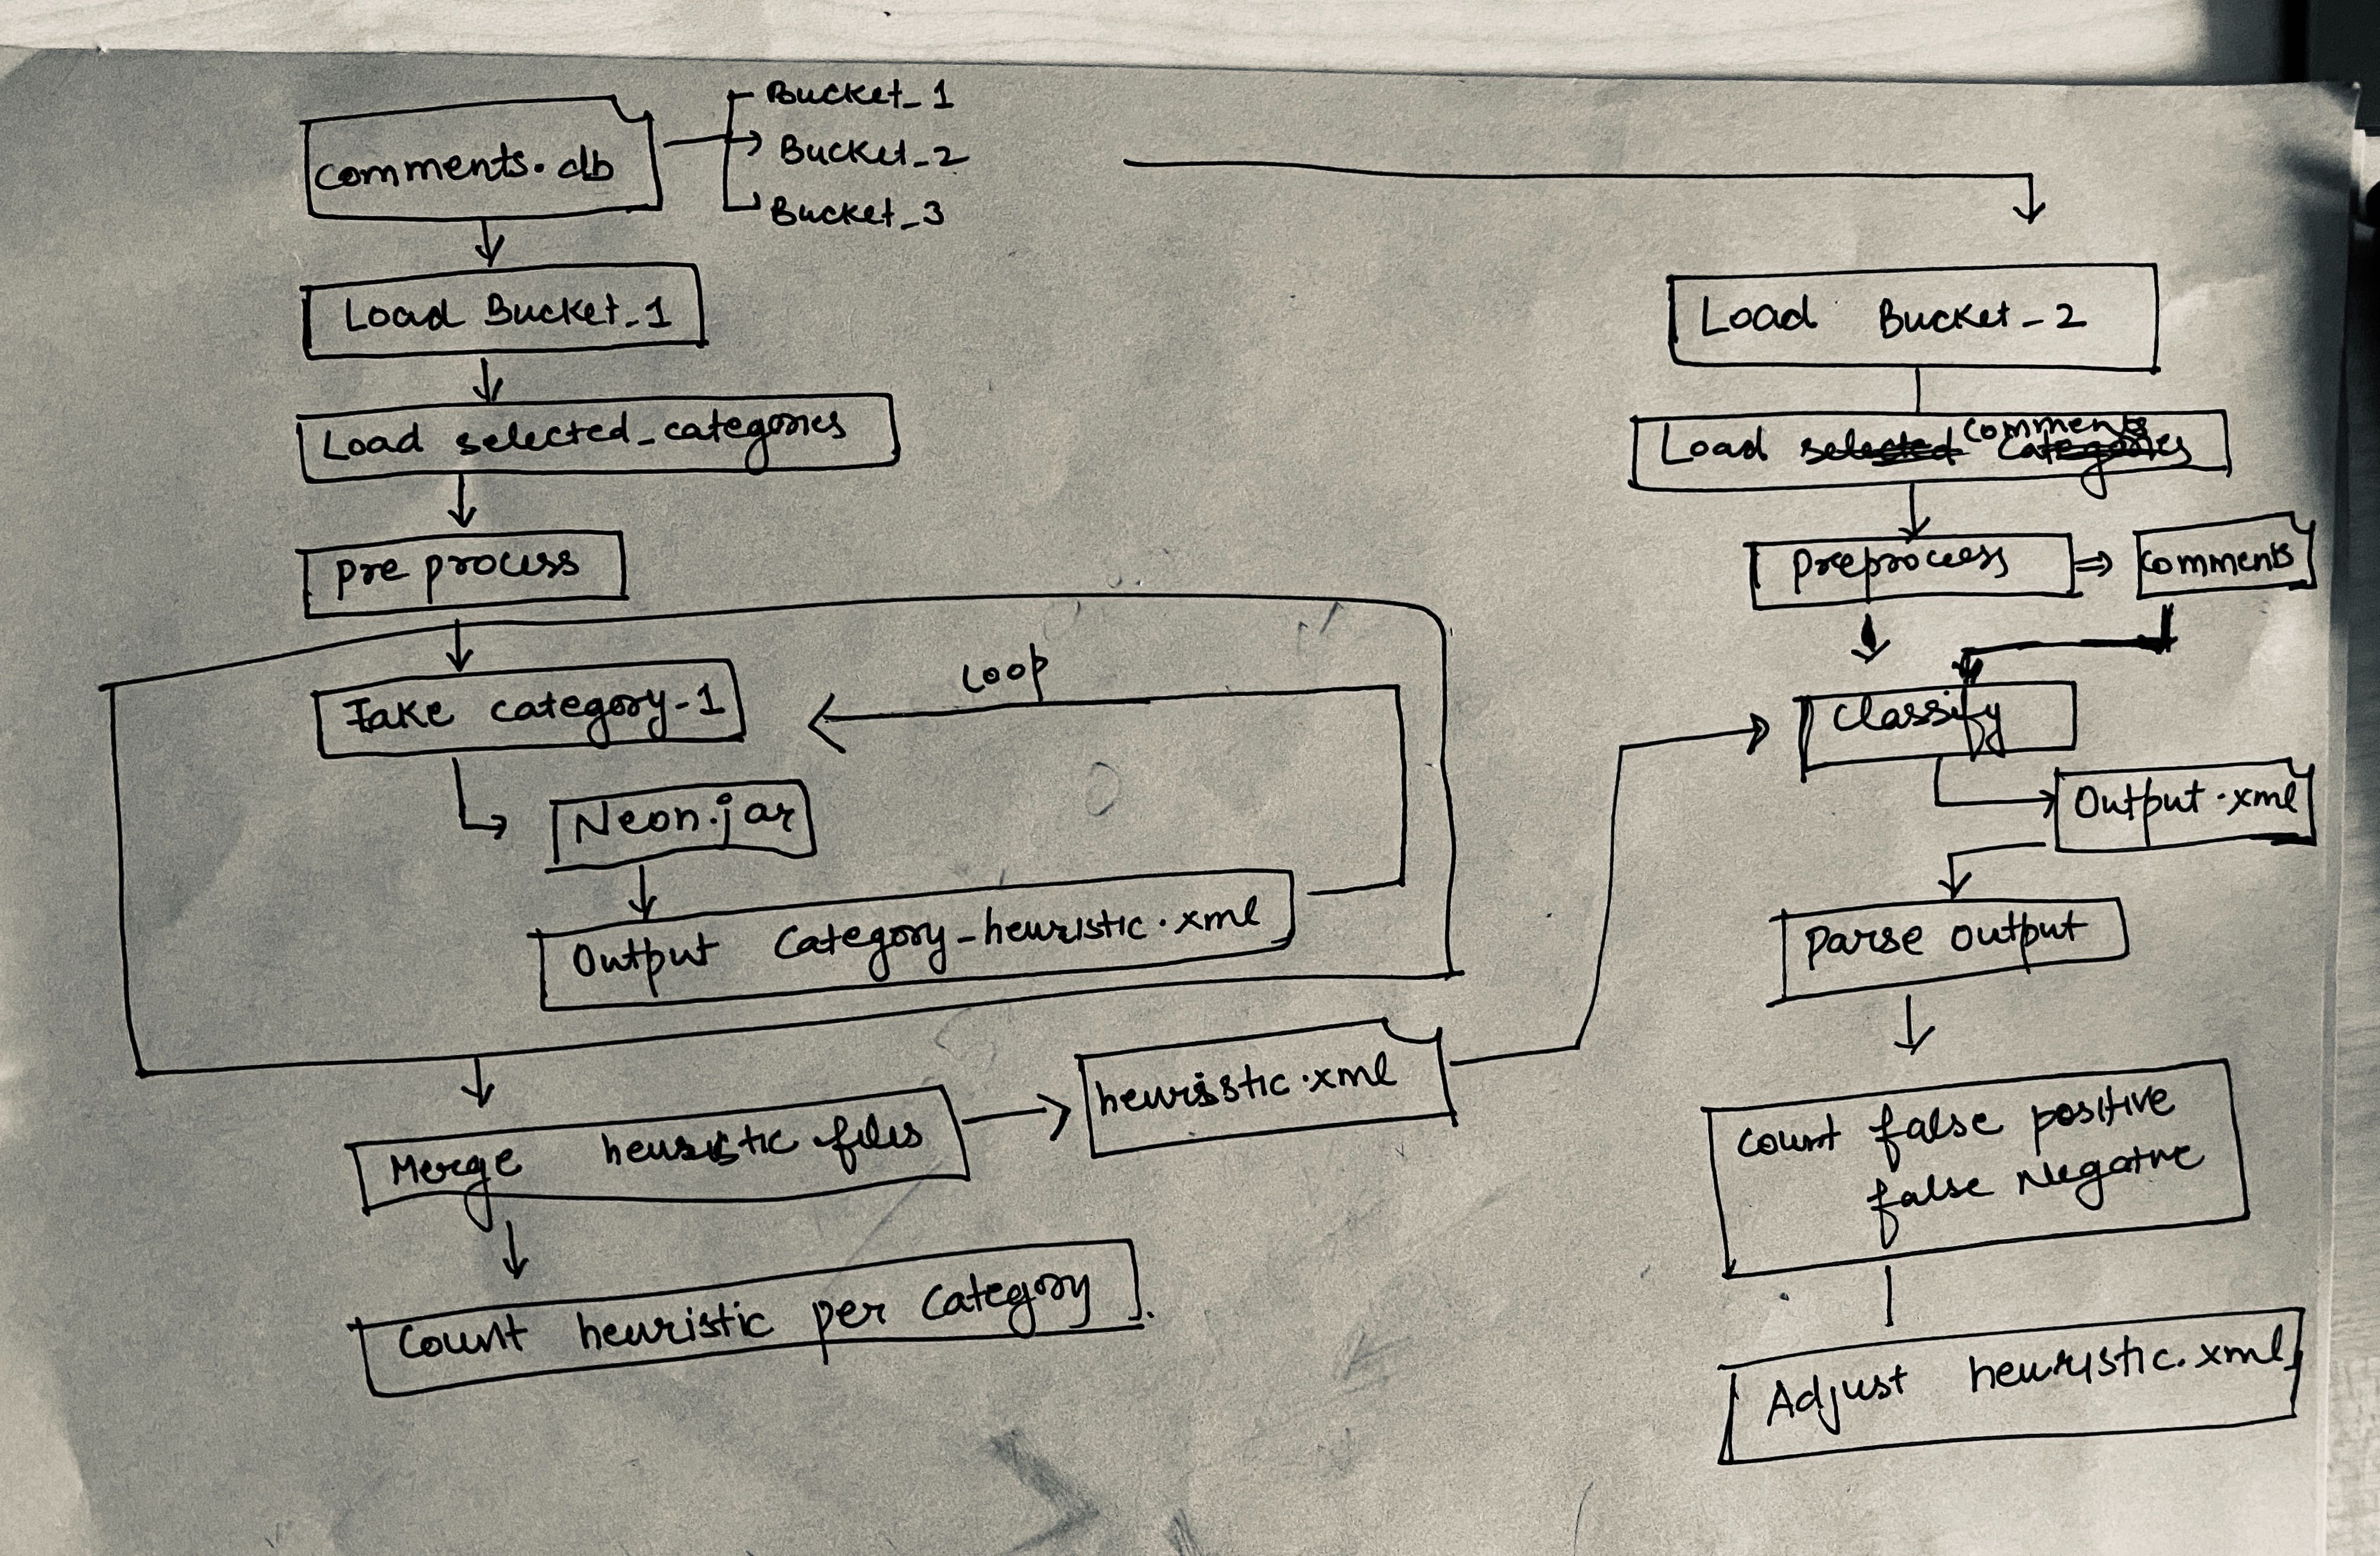 comments.db
Bucket_1
Bucket_2
Bucket_3
Load Bucket_1
Load selected_categories
pre process
Take category-1
Loop
Neon.jar
Output Category-heuristic.xml
Merge heuristic files
heuristic.xml
Count heuristic per Category
Load Bucket_2
Load selected categories comments
Preprocess
comments
Classify
Output.xml
parse output
count false positive
false Negative
Adjust heuristic.xml